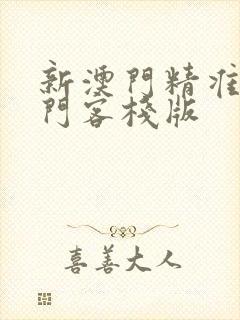 新澳門精准
門客棧版
喜善大人